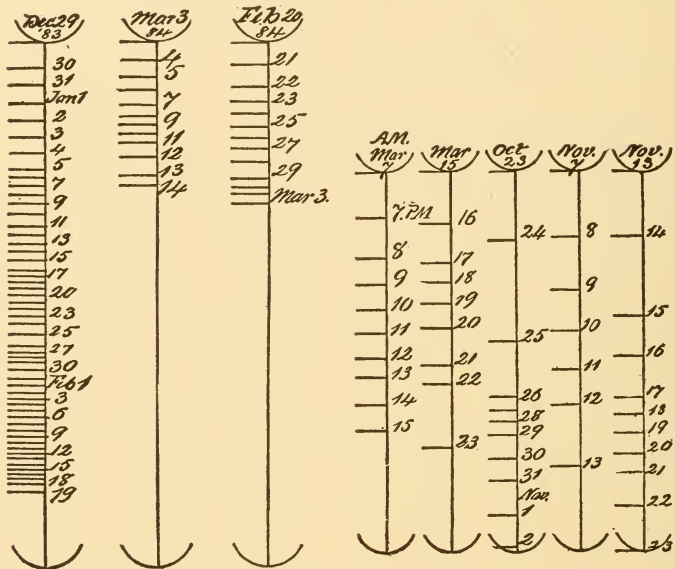 Dec 29
83
30
31
Jan 1
2
3
4
5
7
9
11
13
15
17
20
23
25
27
30
Feb 1
3
6
9
12
15
18
19
Mar 3
84
4
5
7
9
11
12
13
14
Feb 20
84
21
22
23
25
27
29
Mar 3.
A.M.
Mar
7
7. P.M
8
9
10
11
12
13
14
15
Mar
15
16
17
18
19
20
21
22
23
Oct
23
24
25
26
28
29
30
31
Nov.
1
2
Nov.
7
8
9
10
11
12
13
Nov.
13
14
15
16
17
18
19
20
21
22
23